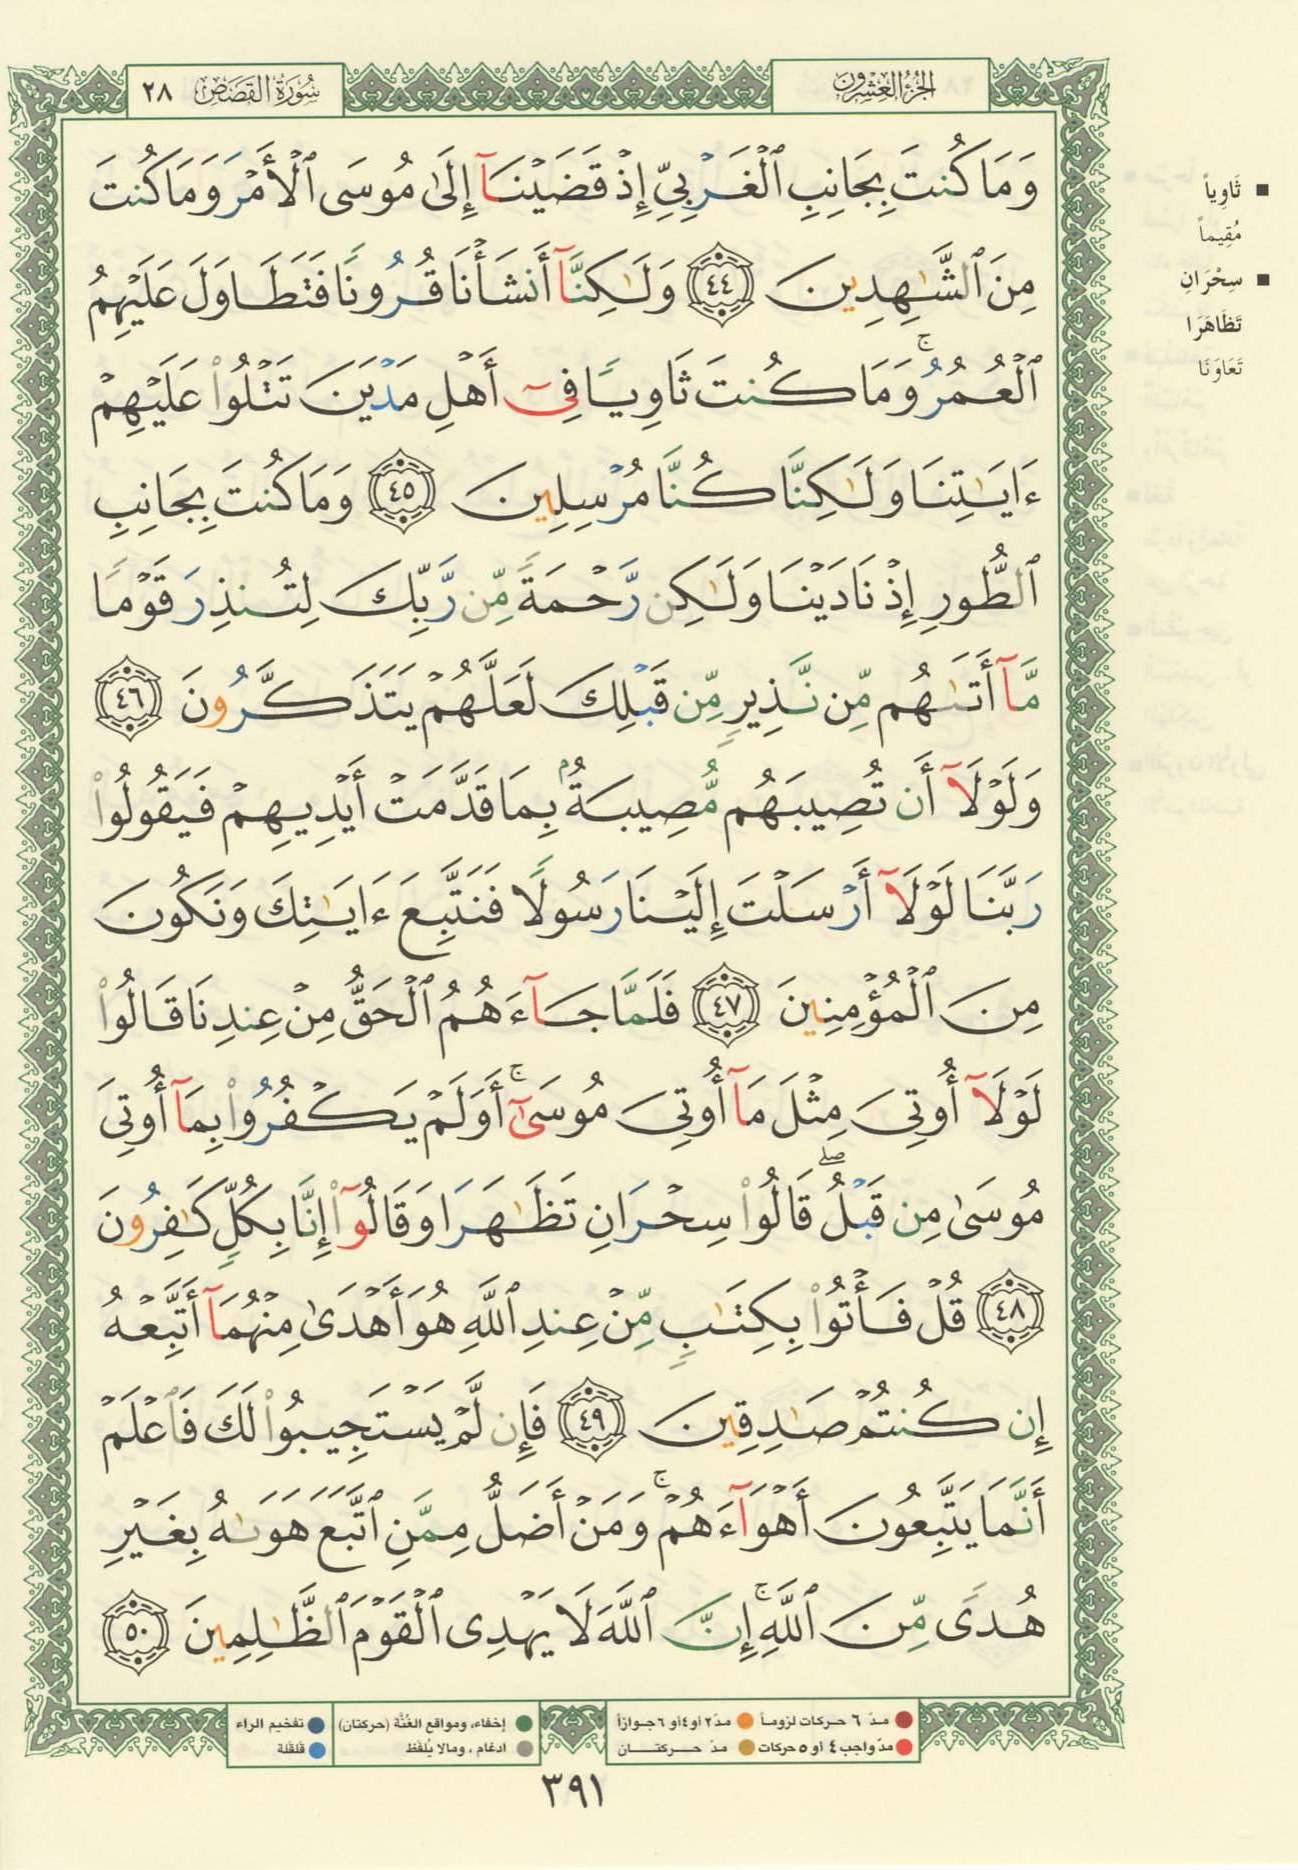 الجزء العشرون
سورة القصص ٢٨
وَمَا كُنتَ بِجَانِبِ ٱلْغَرْبِيِّ إِذْ قَضَيْنَآ إِلَىٰ مُوسَى ٱلْأَمْرَ وَمَا كُنتَ
مِنَ ٱلشَّـٰهِدِينَ ٤٤ وَلَـٰكِنَّآ أَنشَأْنَا قُرُونًا فَتَطَاوَلَ عَلَيْهِمُ
ٱلْعُمُرُ ۚ وَمَا كُنتَ ثَاوِيًا فِىٓ أَهْلِ مَدْيَنَ تَتْلُوا۟ عَلَيْهِمْ
ءَايَـٰتِنَا وَلَـٰكِنَّا كُنَّا مُرْسِلِينَ ٤٥ وَمَا كُنتَ بِجَانِبِ
ٱلطُّورِ إِذْ نَادَيْنَا وَلَـٰكِن رَّحْمَةً مِّن رَّبِّكَ لِتُنذِرَ قَوْمًا
مَّآ أَتَىٰهُم مِّن نَّذِيرٍ مِّن قَبْلِكَ لَعَلَّهُمْ يَتَذَكَّرُونَ ٤٦
وَلَوْلَآ أَن تُصِيبَهُم مُّصِيبَةٌۢ بِمَا قَدَّمَتْ أَيْدِيهِمْ فَيَقُولُوا۟
رَبَّنَا لَوْلَآ أَرْسَلْتَ إِلَيْنَا رَسُولًا فَنَتَّبِعَ ءَايَـٰتِكَ وَنَكُونَ
مِنَ ٱلْمُؤْمِنِينَ ٤٧ فَلَمَّا جَآءَهُمُ ٱلْحَقُّ مِنْ عِندِنَا قَالُوا۟
لَوْلَآ أُوتِىَ مِثْلَ مَآ أُوتِىَ مُوسَىٰٓ ۚ أَوَلَمْ يَكْفُرُوا۟ بِمَآ أُوتِىَ
مُوسَىٰ مِن قَبْلُ ۖ قَالُوا۟ سِحْرَانِ تَظَـٰهَرَا وَقَالُوٓا۟ إِنَّا بِكُلٍّ كَـٰفِرُونَ
٤٨ قُلْ فَأْتُوا۟ بِكِتَـٰبٍ مِّنْ عِندِ ٱللَّهِ هُوَ أَهْدَىٰ مِنْهُمَآ أَتَّبِعْهُ
إِن كُنتُمْ صَـٰدِقِينَ ٤٩ فَإِن لَّمْ يَسْتَجِيبُوا۟ لَكَ فَٱعْلَمْ
أَنَّمَا يَتَّبِعُونَ أَهْوَآءَهُمْ ۚ وَمَنْ أَضَلُّ مِمَّنِ ٱتَّبَعَ هَوَىٰهُ بِغَيْرِ
هُدًى مِّنَ ٱللَّهِ ۚ إِنَّ ٱللَّهَ لَا يَهْدِى ٱلْقَوْمَ ٱلظَّـٰلِمِينَ ٥٠
■ ثَاوِياً
مُقِيماً
■ سِحْرَانِ
تَظَاهَرَا
تَعَاوَنَا
مدّ ٦ حركات لزوماً مدّ ٢ أو ٤ أو ٦ جوازاً
مدّ واجب ٤ أو ٥ حركات مدّ حركتان
إخفاء، ومواقع الغُنَّة (حركتان) تفخيم الراء
ادغام، وما لا يُلفظ قلقلة
٣٩١